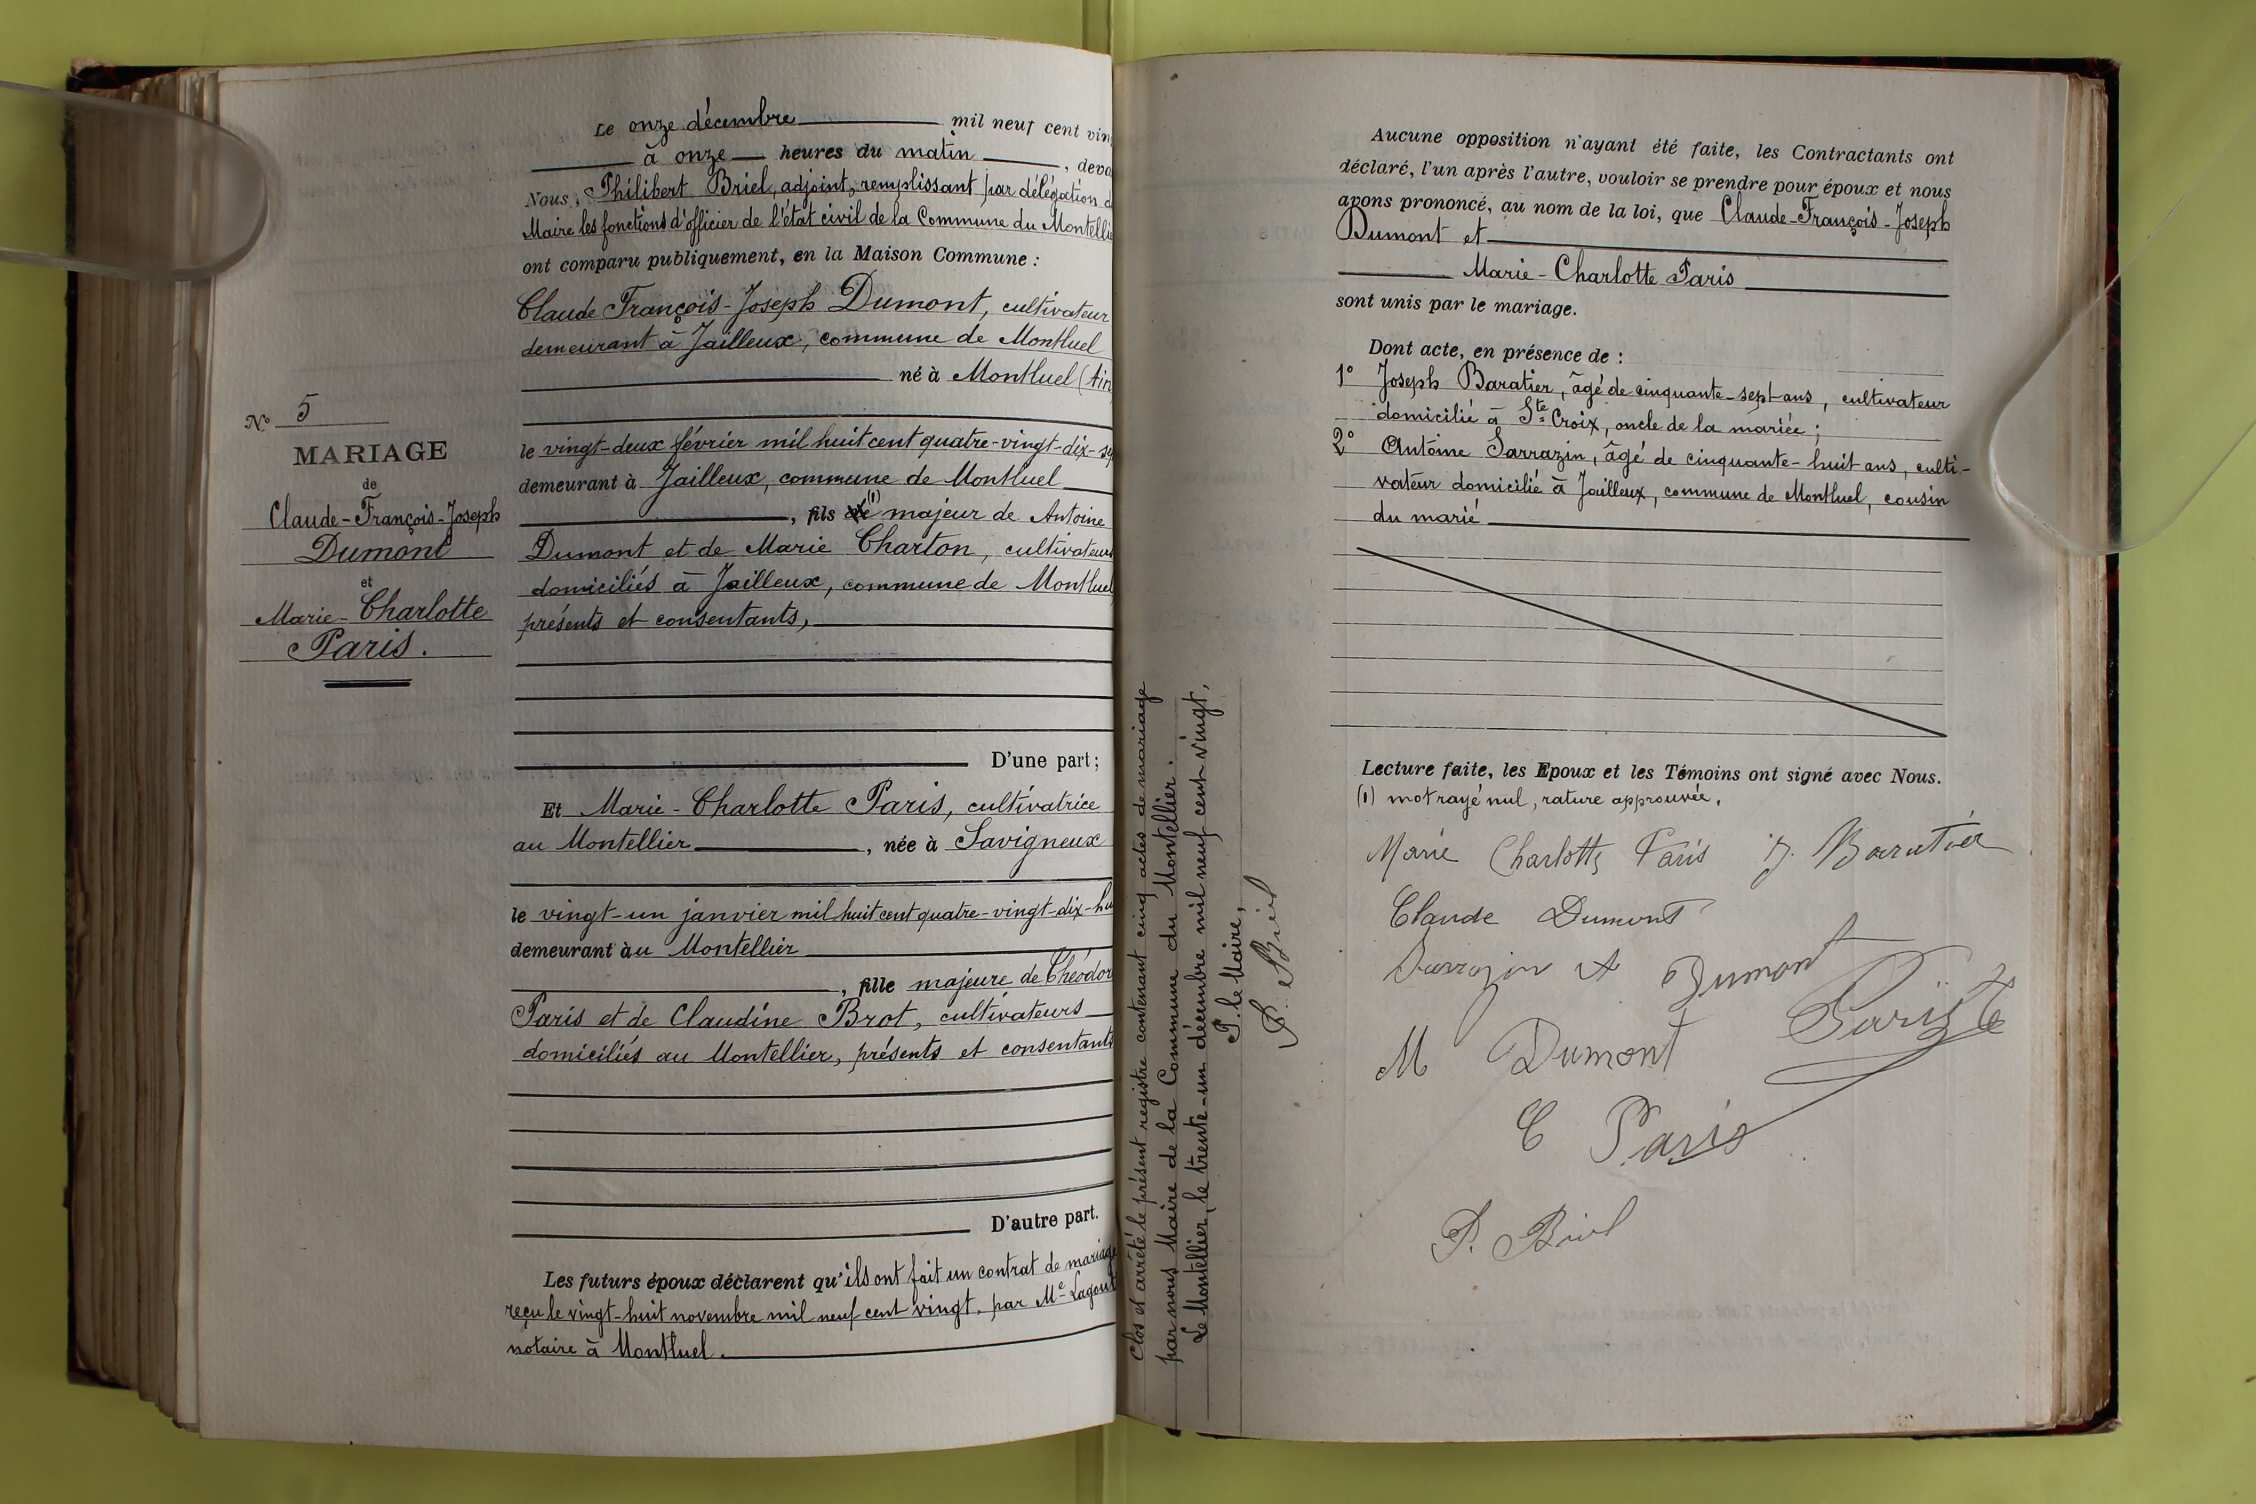 N° 5
MARIAGE
de
Claude-François-Joseph
Dumont
et
Marie-Charlotte
Paris.
Le onze décembre mil neuf cent vin
à onze heures du matin, deva
Nous, Philibert Briel, adjoint, remplissant par délégation d
Maire les fonctions d'officier de l'état civil de la Commune du Montellie
ont comparu publiquement, en la Maison Commune :
Claude François-Joseph Dumont, cultivateur
demeurant à Jailleux, commune de Montluel
né à Montluel (Ain
le vingt-deux février mil huit cent quatre-vingt-dix-se
demeurant à Jailleux, commune de Montluel
, fils de (1) majeur de Antoine
Dumont et de Marie Charton, cultivateurs
domiciliés à Jailleux, commune de Montluel
présents et consentants,
D'une part ;
Et Marie-Charlotte Paris, cultivatrice
au Montellier, née à Savigneux
le vingt-un janvier mil huit cent quatre-vingt-dix-hu
demeurant àu Montellier
, fille majeure de Théodor
Paris et de Claudine Brot, cultivateurs
domiciliés au Montellier, présents et consentants
D'autre part.
Les futurs époux déclarent qu'ils ont fait un contrat de mariage
reçu le vingt-huit novembre mil neuf cent vingt, par Me
notaire à Montluel.
Clos et arrêté le présent registre contenant cinq actes de mariage
par nous Maire de la Commune du Montellier.
Le Montellier, le trente-un décembre mil neuf cent vingt,
P. le Maire,
P. Briel
Aucune opposition n'ayant été faite, les Contractants ont
déclaré, l'un après l'autre, vouloir se prendre pour époux et nous
avons prononcé, au nom de la loi, que Claude-François-Joseph
Dumont et
Marie-Charlotte Paris
sont unis par le mariage.
Dont acte, en présence de :
1° Joseph Baratier, âgé de cinquante-sept ans, cultivateur
domicilié à Ste Croix, oncle de la mariée ;
2° Antoine Sarrazin, âgé de cinquante-huit ans, culti-
vateur domicilié à Jailleux, commune de Montluel, cousin
du marié
Lecture faite, les Epoux et les Témoins ont signé avec Nous.
(1) mot rayé nul, rature approuvée.
Marie Charlotte Paris J. Baratier
Claude Dumont
Sarrazin A Dumont
Paris T
M Dumont
C Paris
P. Briel